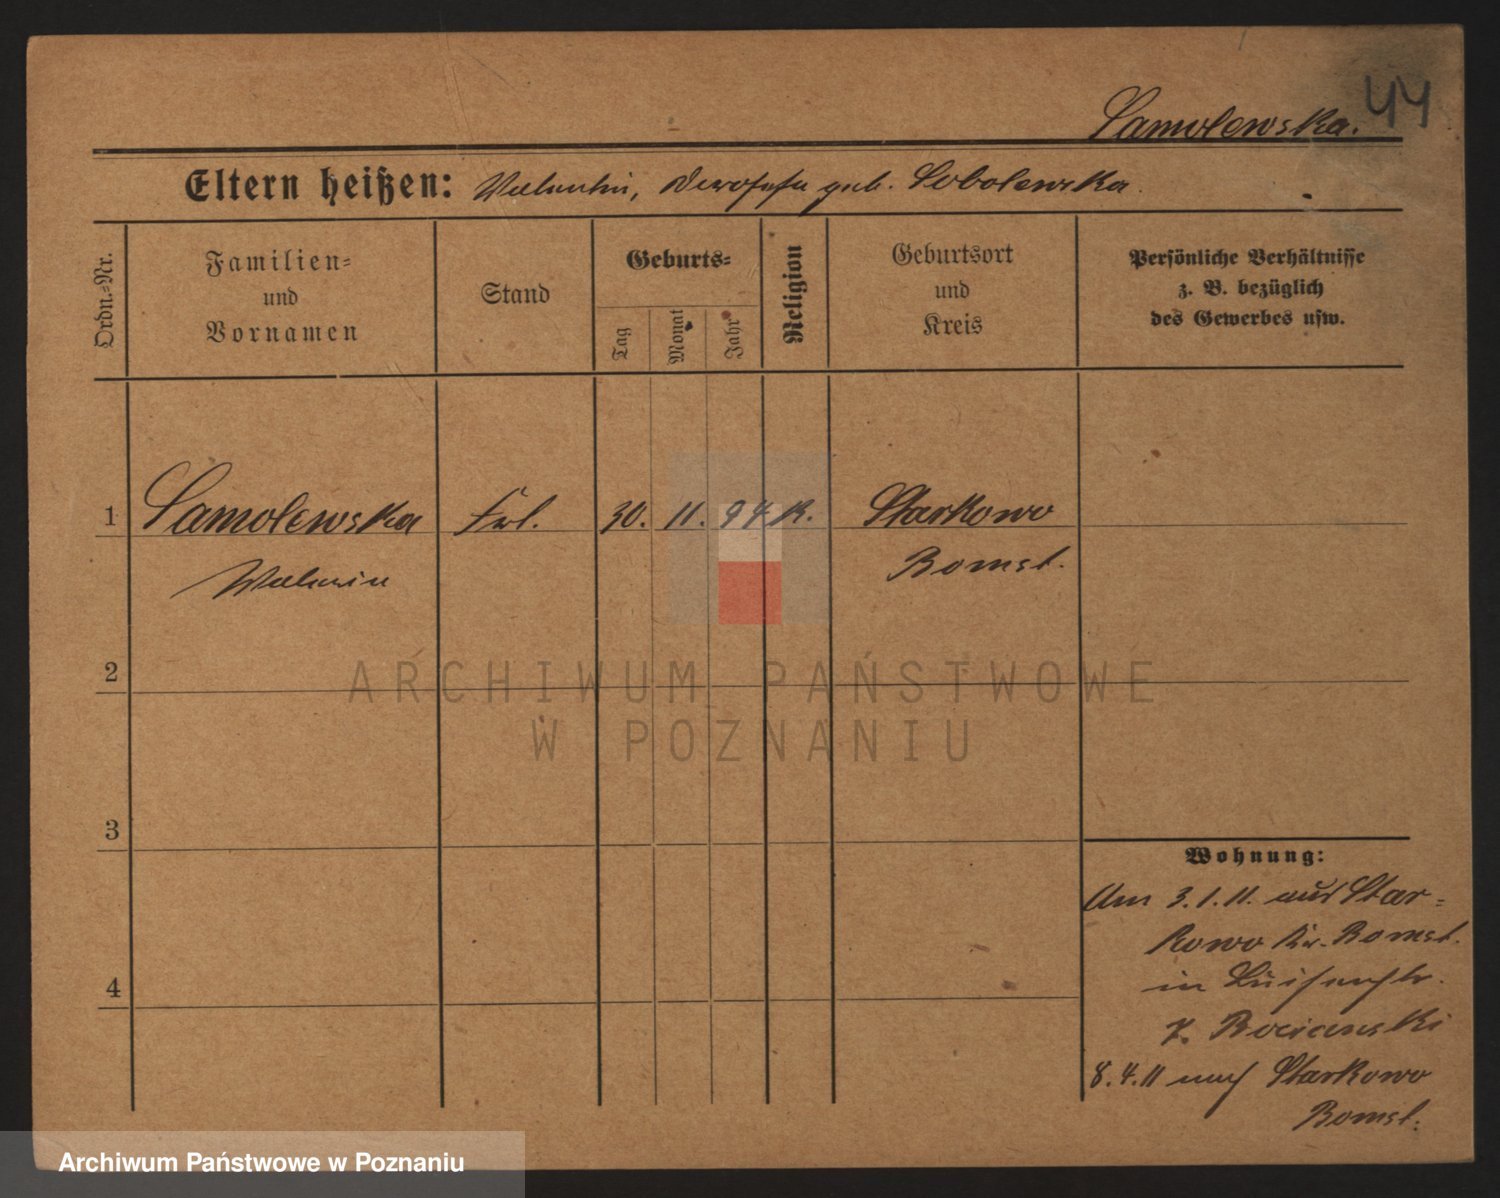 44
Samolewska.
Eltern heißen: Valentin, geb. Sobolewska.
Ordn.-Nr.
Familien-
und
Vornamen
Stand
Geburts-
Tag
Monat
Jahr
Religion
Geburtsort
und
Kreis
Persönliche Verhältnisse
z. B. bezüglich
des Gewerbes usw.
1 Samolewska Frl. 30. 11. 94 K. Starkowo
Bomst.
2
3
4
Wohnung:
Am 3.1.11. aus Star-
kowo Kr. Bomst.
in Luisenstr.
8.4.11 nach Starkowo
Bomst.
ARCHIWUM PAŃSTWOWE
W POZNANIU
Archiwum Państwowe w Poznaniu